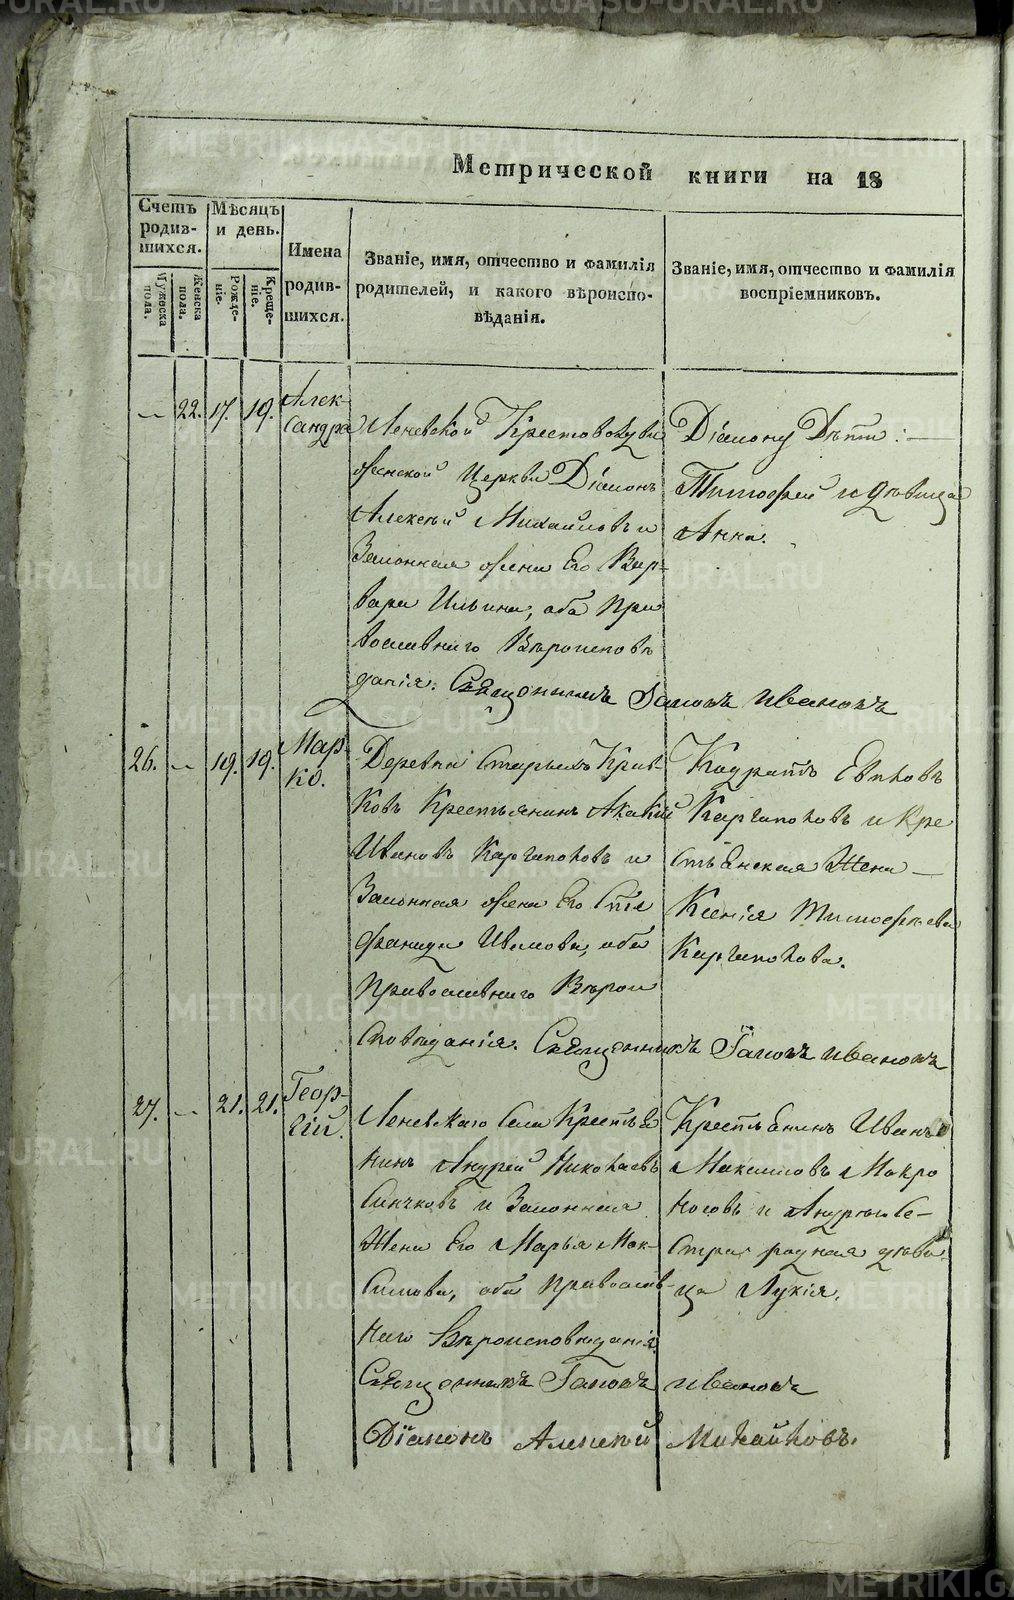 Метрической книги на 18
Счетъ родив-шихся.
Мѣсяцъ и день.
Имена родив-шихся.
Званіе, имя, отчество и фамилія родителей, и какого вѣроиспо-вѣданія.
Званіе, имя, отчество и фамилія воспріемниковъ.
Мужеска пола.
Женска пола.
Рожде-ніе.
Креще-ніе.
— 22. 17. 19.
Алек-
сандра
Леневской Крестовоздви
женской Церкви Діаконъ
Алексѣй Михайловъ и
Законная жена Его Вар-
вара Ильина, оба Пра
вославнаго Вѣроисповѣ
данія. Священникъ Іаковъ Ивановъ
Діакону Дѣти: —
Тимофей и дѣвица
Анна.
26. — 19. 19.
Мар-
ко.
Деревни Старыхъ Крив-
ковъ Крестьянинъ Акакій
Ивановъ Каргапоповъ и
Законная жена Его Сте
фанида Иванова, оба
Православнаго Вѣрои
сповѣданія. Священникъ Іаковъ Ивановъ
Кодратъ
Каргапоповъ и Кре
стьЕнская Жена —
Ксенія Тимофѣева
Каргапопова.
27. — 21. 21.
Геор-
гій.
Леневскаго Села КрестьЕ
нинъ Андрей Николаевъ
и Законная
Жена Его Марья Мак-
симова, оба Православ-
наго Вѣроисповѣданія.
Священникъ Іаковъ Ивановъ
Діаконъ Алексѣй Михайловъ.
КрестьЕнинъ Иванъ
Максимовъ Мокро
носовъ и Андрѣя Се-
стра родная дѣви-
ца Лукія.
METRIKI.GASO-URAL.RU